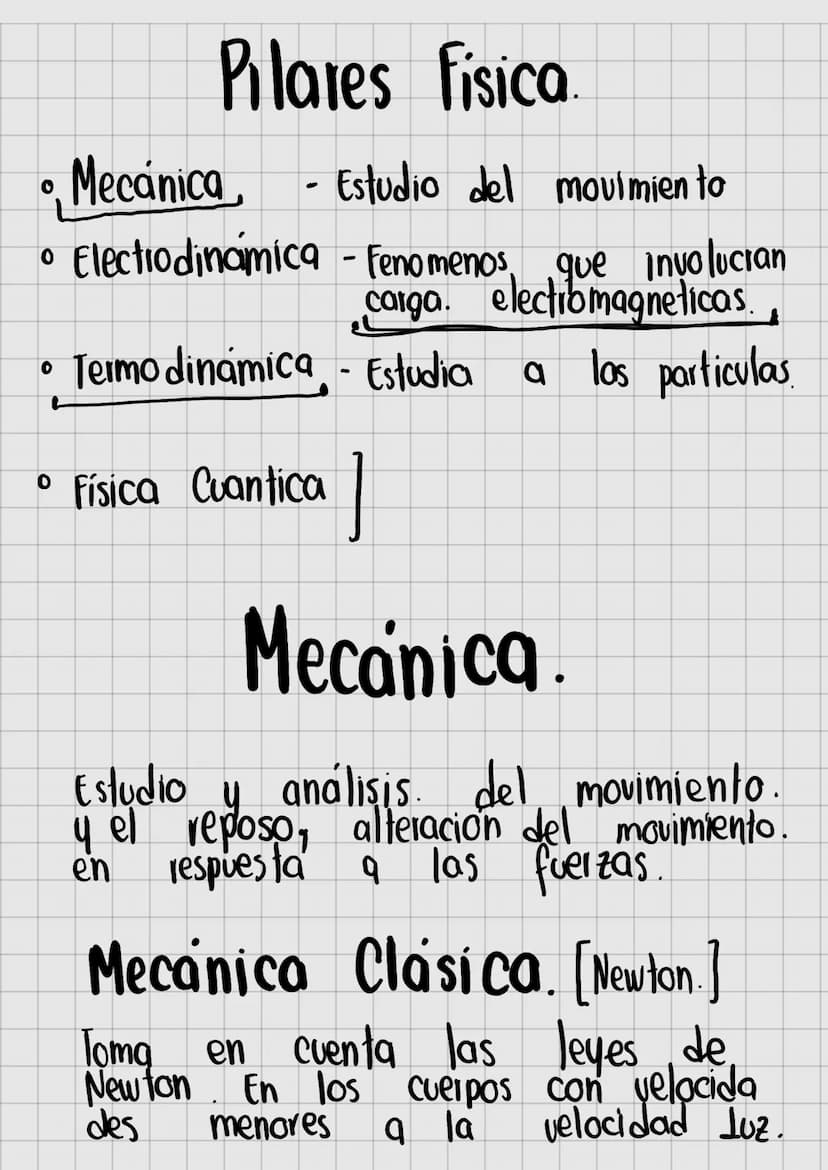 Pilares Física.
° Mecánica - Estudio del movimiento
° Electrodinámica - Fenomenos que involucran
carga. electromagneticas.
° Termodinámica - Estudia a los particulas.
° Física Cuantica ]
Mecánica.
Estudio y análisis. del movimiento.
y el reposo, alteración del movimiento.
en respuesta a las fuerzas.
Mecánica Clásica. [Newton.]
Toma en cuenta las leyes de
Newton. En los cuerpos con velocida
des menores a la velocidad luz.